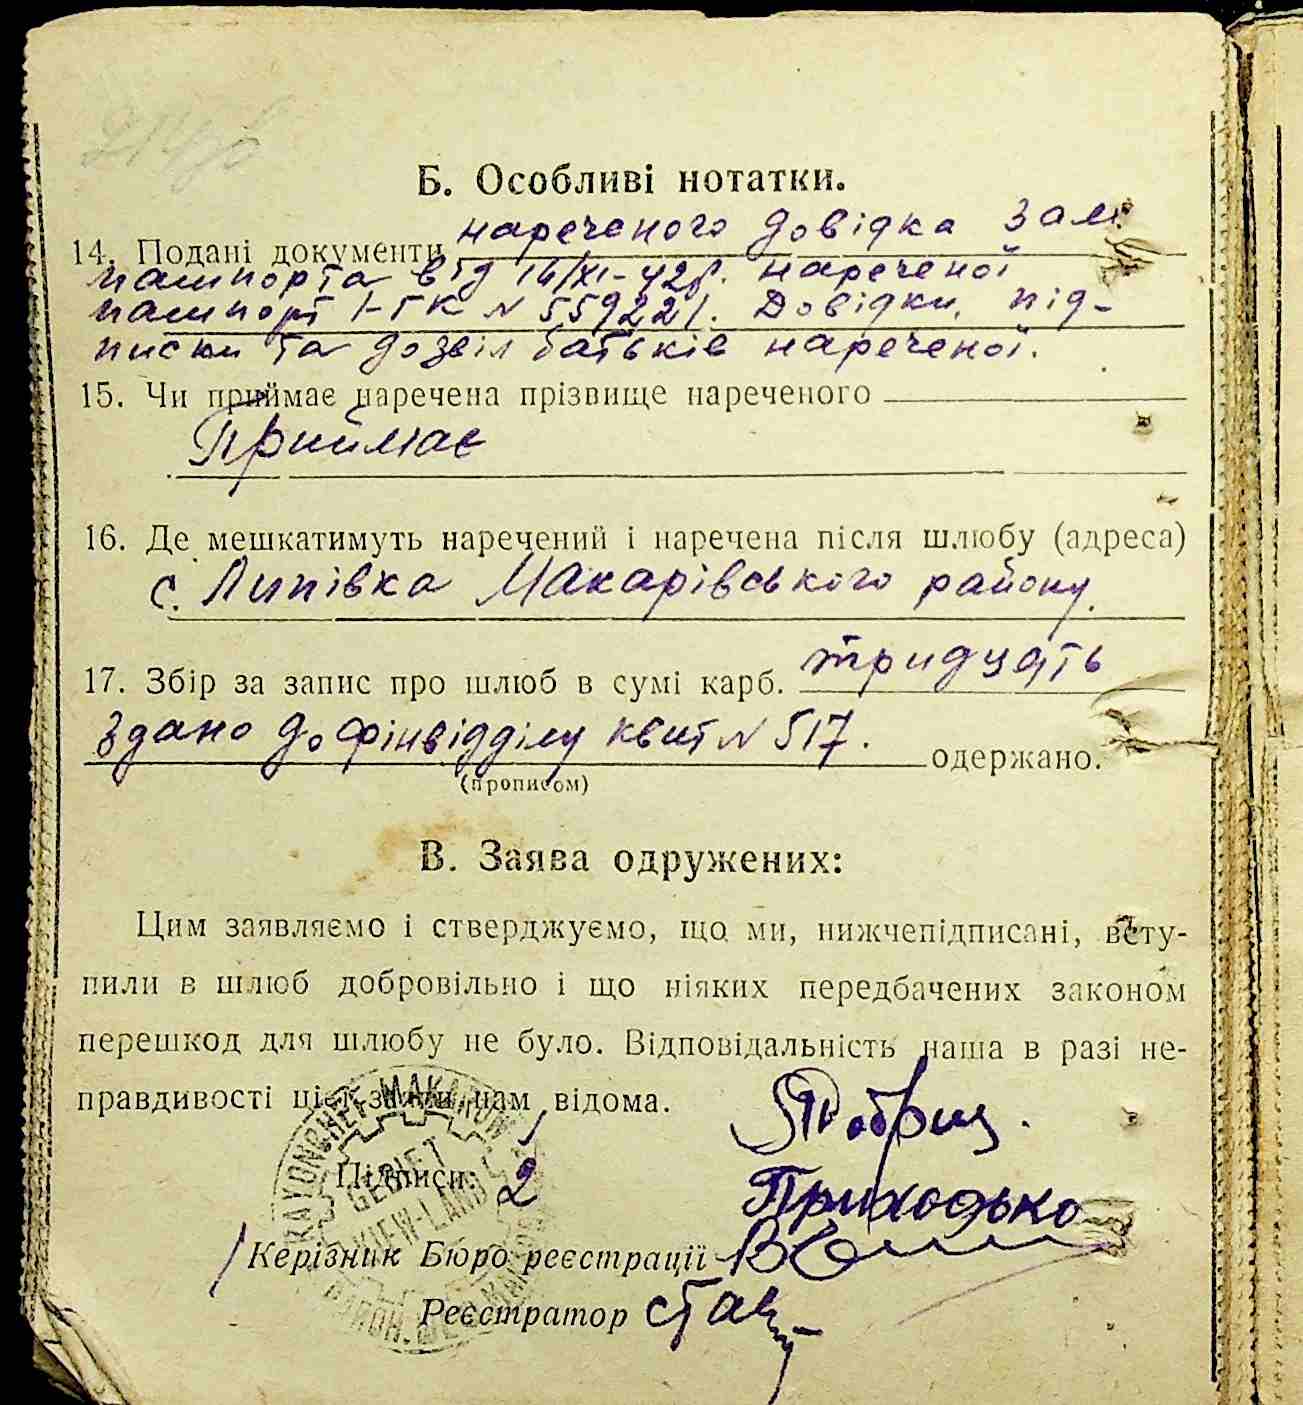 Б. Особливі нотатки.
14. Подані документи нареченого довідка зам.
пашпорта від 16/XI-42р. нареченої
пашпорт I-ГК № 559221. Довідки, під-
писки та дозвіл батьків нареченої.
15. Чи приймає наречена прізвище нареченого
Приймає
16. Де мешкатимуть наречений і наречена після шлюбу (адреса)
с. Липівка Макарівського району.
17. Збір за запис про шлюб в сумі карб. тридцять
здано до фінвідділу квит № 517. одержано.
(прописом)
В. Заява одружених:
Цим заявляємо і стверджуємо, що ми, нижчепідписані, всту-
пили в шлюб добровільно і що ніяких передбачених законом
перешкод для шлюбу не було. Відповідальність наша в разі не-
правдивості цієї заяви нам відома.
Підписи: 2
Приходько
Керізник Бюро реєстрації
Реєстратор
RAYONCHEF MAKAROW
GEBIET
KIEW-LAND